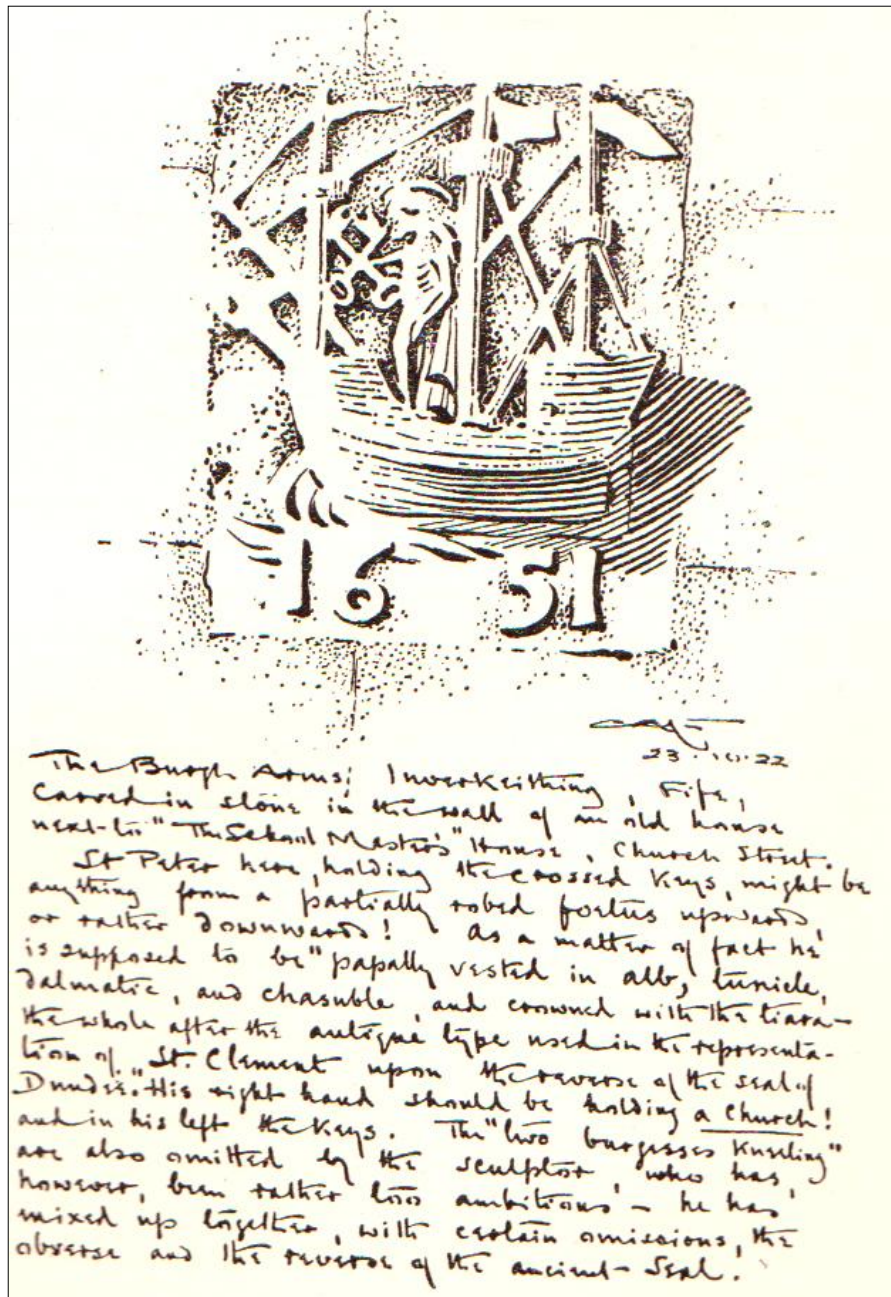 16 51
23.10.22
The Burgh Arms, Inverkeithing, Fife,
Carved in stone in the wall of an old house
next-to "The School Master's" House, Church Street.
St Peter here, holding the crossed Keys, might be
anything from a partially robed foetus upwards,
or rather downwards! As a matter of fact he
is supposed to be "papally vested in alb, tunicle,
Dalmatic, and chasuble, and crowned with the tiara –
the whole after the antique type used in the representa-
tion of St. Clement upon the reverse of the seal of
Dundee." His right hand should be holding a Church!
and in his left the Keys. The "two burgesses Kneeling"
are also omitted by the sculptor, who has,
however, been rather too ambitious – he has
mixed up together, with certain omissions, the
obverse and the reverse of the ancient Seal.